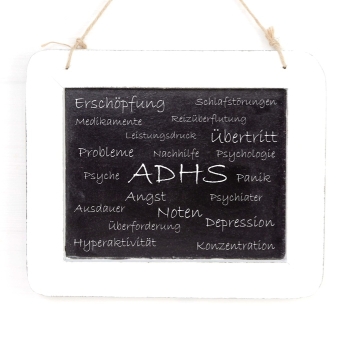 Erschöpfung Schlafstörungen
Medikamente Reizüberflutung
Leistungsdruck Übertritt
Probleme Nachhilfe Psychologie
Psyche ADHS Panik
Angst Psychiater
Ausdauer Noten
Überforderung Depression
Hyperaktivität Konzentration